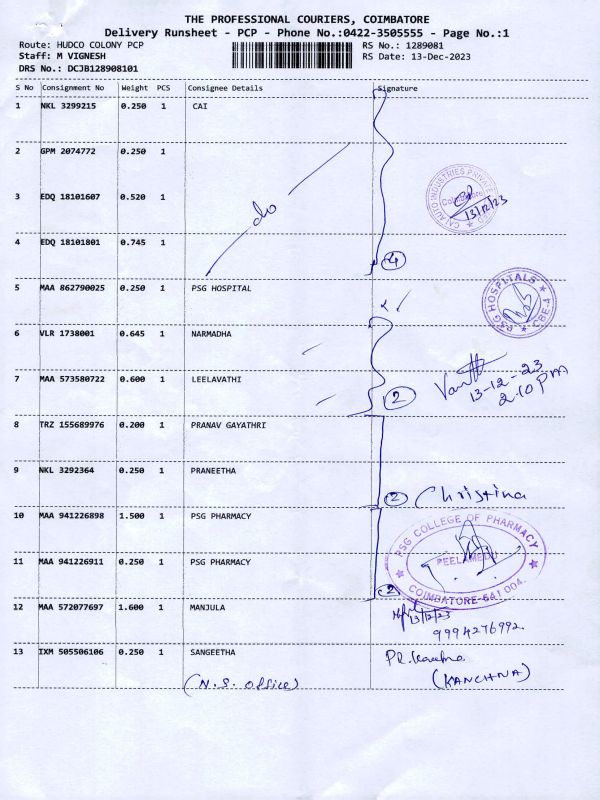 THE PROFESSIONAL COURIERS, COIMBATORE
Delivery Runsheet - PCP - Phone No.:0422-3505555 - Page No.:1
Route: HUDCO COLONY PCP RS No.: 1289081
Staff: M VIGNESH RS Date: 13-Dec-2023
DRS No.: DCJB128908101
S No Consignment No Weight PCS Consignee Details Signature
1 NKL 3299215 0.250 1 CAI
2 GPM 2074772 0.250 1
3 EDQ 18101607 0.520 1
do
CAI AUTO INDUSTRIES PRIVATE
Coimbatore
13/12/23
4 EDQ 18101801 0.745 1
4
5 MAA 862790025 0.250 1 PSG HOSPITAL
PSG HOSPITALS
CBE-4
6 VLR 1738001 0.645 1 NARMADHA
7 MAA 573580722 0.600 1 LEELAVATHI
13-12-23
2.10 pm
2
8 TRZ 155689976 0.200 1 PRANAV GAYATHRI
9 NKL 3292364 0.250 1 PRANEETHA
2 Christina
10 MAA 941226898 1.500 1 PSG PHARMACY
PSG COLLEGE OF PHARMACY
11 MAA 941226911 0.250 1 PSG PHARMACY
PEELAMEDU
COIMBATORE-641 004.
2
12 MAA 572077697 1.600 1 MANJULA
13/12/23
9994276992
13 IXM 505506106 0.250 1 SANGEETHA
(N.S. office)
(KANCHNA)